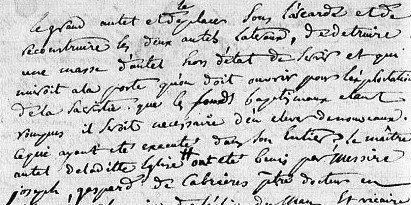 le
le grand autel et de placer sous l'arcade et de
reconstruire les deux autels lateraux, de detruire
une masse d'autel hors d'état de servir et qui
nuisoit a la porte qu'on doit ouvrir pour l'exploitation
de la sacristie, que les fonds baptismaux etant
rompus il seroit necessaire d'en elever de nouveaux.
ce qui ayant eté executé dans son entier, le maître
autel de laditte Eglise ont eté benis par Messire
joseph, gaspard de Cabrières ptre docteur en